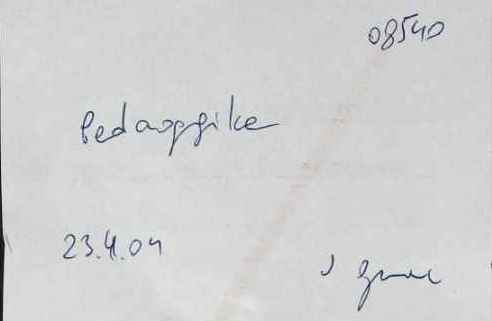 08540
Pedagogike
23.4.04